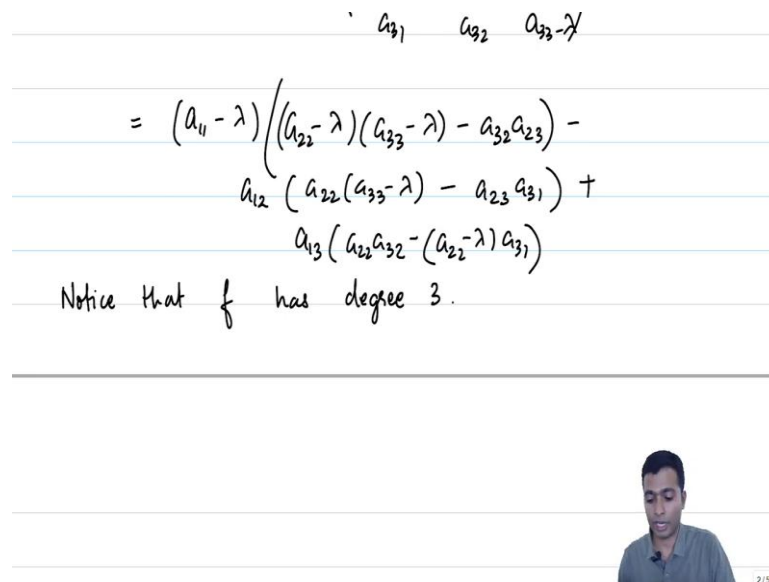 a₃₁ a₃₂ a₃₃-λ
= (a₁₁ - λ) ((a₂₂ - λ)(a₃₃ - λ) - a₃₂a₂₃) -
a₁₂ (a₂₂(a₃₃-λ) - a₂₃a₃₁) +
a₁₃ (a₂₂a₃₂ - (a₂₂-λ)a₃₁)
Notice that f has degree 3.